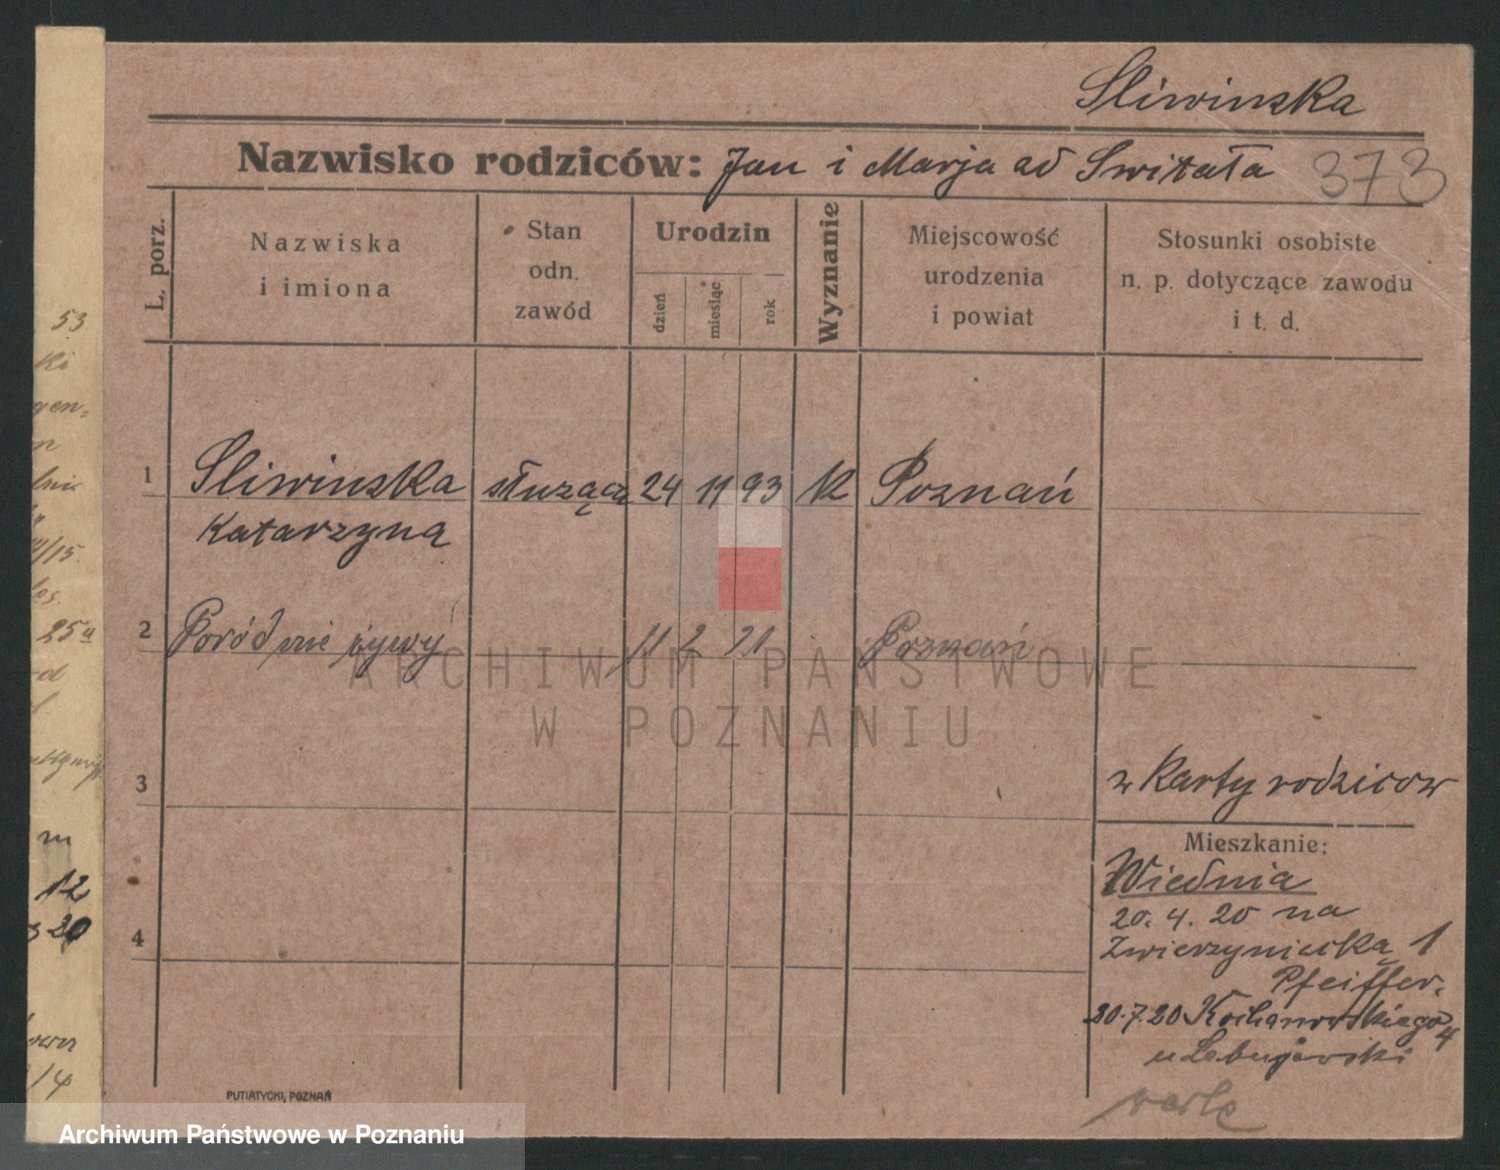 Sliwinska
Nazwisko rodziców: Jan i Marja od Switała 373
L. porz.
Nazwiska
i imiona
Stan
odn.
zawód
Urodzin
dzień
miesiąc
rok
Wyznanie
Miejscowość
urodzenia
i powiat
Stosunki osobiste
n. p. dotyczące zawodu
i t. d.
1 Sliwinska służąca 24 11 93 k Poznań
Katarzyna
2 Poród nie żywy 11 2 21 Poznań
3
z Karty rodzicow
Mieszkanie:
Wiednia
20. 4. 20 na
4
Zwierzyniecką 1
Pfeiffer.
20.7.20 Kochanowskiego 4
u
PUTIATYCKI, POZNAŃ
53
ki
gen-
/15.
25
m
12
20
/4
ARCHIWUM PAŃSTWOWE
W POZNANIU
Archiwum Państwowe w Poznaniu